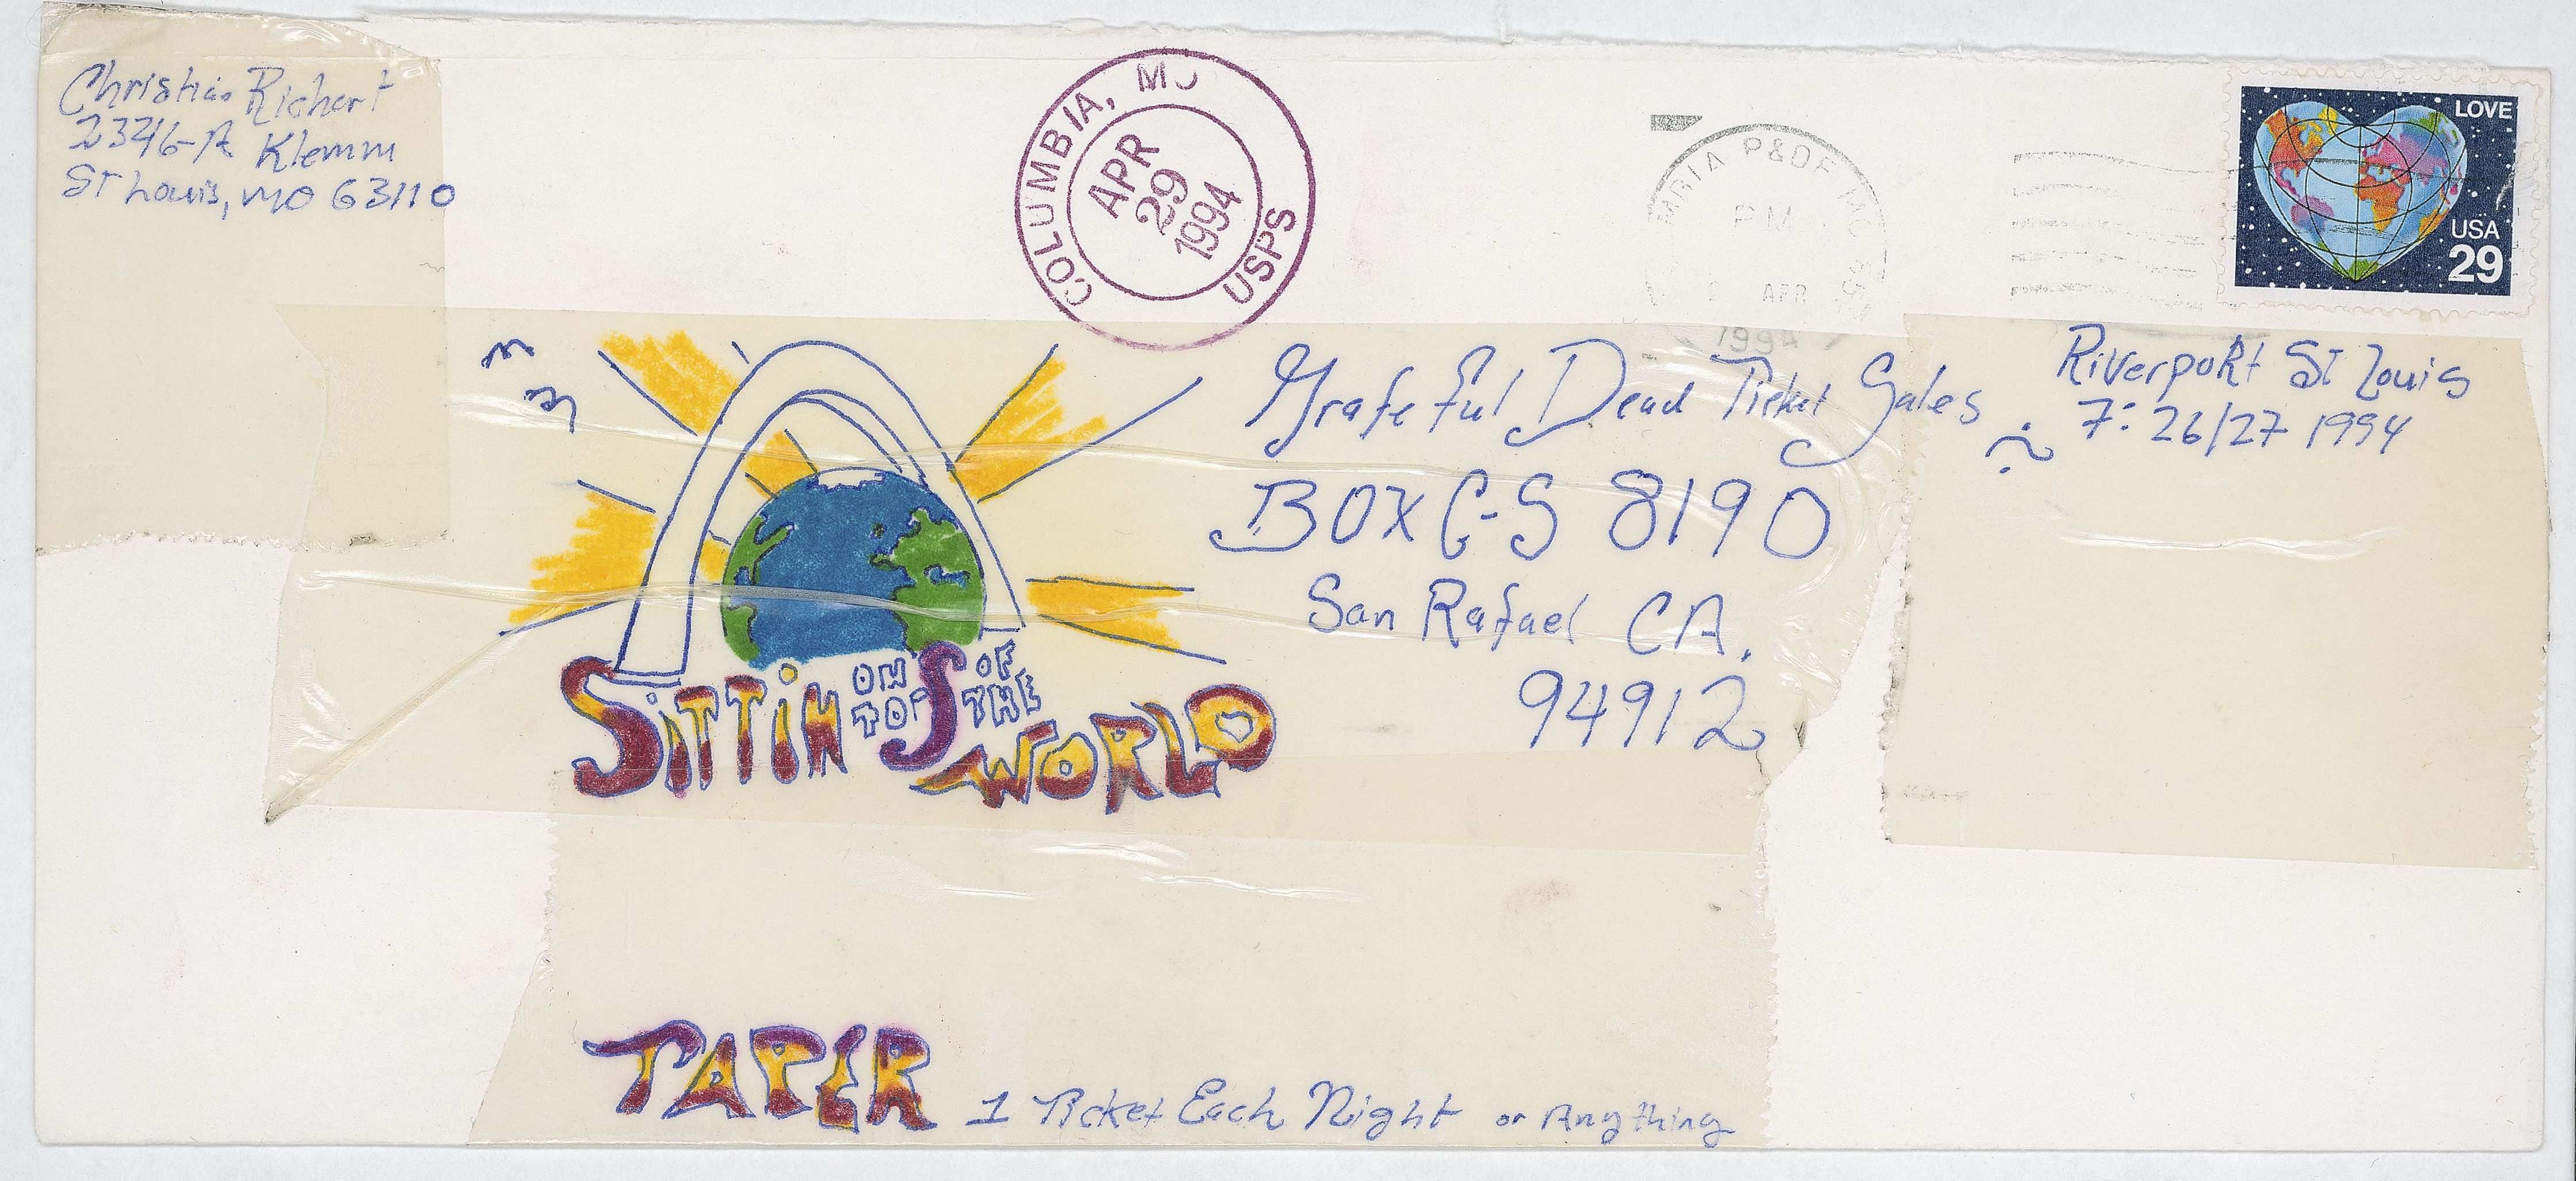 Christian Richart
2346-A Klemm
St Louis, MO 63110
COLUMBIA, MO
APR
29
1994
USPS
P&DF
PM
APR
1994
LOVE
USA
29
Grateful Dead Ticket Sales
BOX C-S 8190
San Rafael CA.
94912
Riverport St Louis
7: 26/27 1994
SiTTiN ON TOPS OF THE WORLD
TAPER 1 Ticket Each Night or Anything